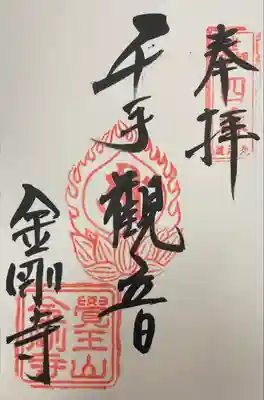 奉拝
千手觀音
金剛寺
覺王山
金剛寺